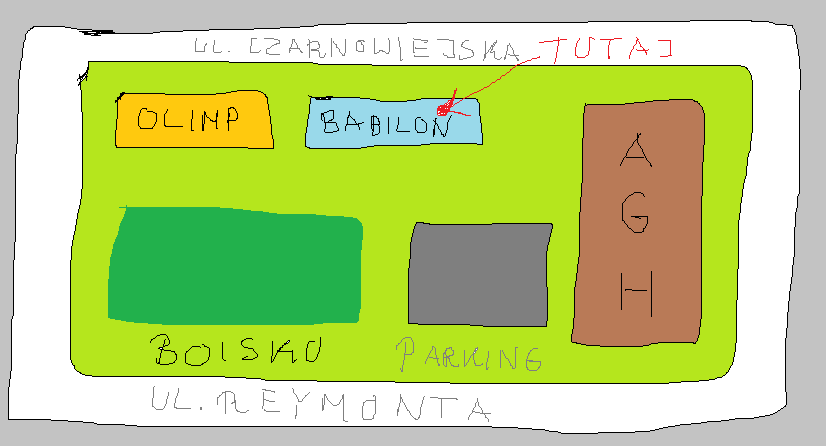 UL. CZARNOWIEJSKA
TUTAJ
OLIMP
BABILON
A
G
H
BOISKO
PARKING
UL. REYMONTA